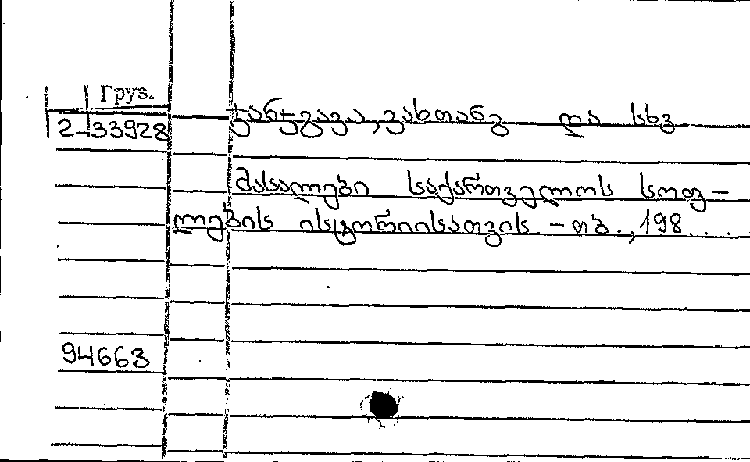 Груз.
2-33928 ჯანჯღავა, ვახთანგ და სხვ
მასალები საქართველოს სოფ-
ლების ისტორიისათვის - თბ., 198...
94663